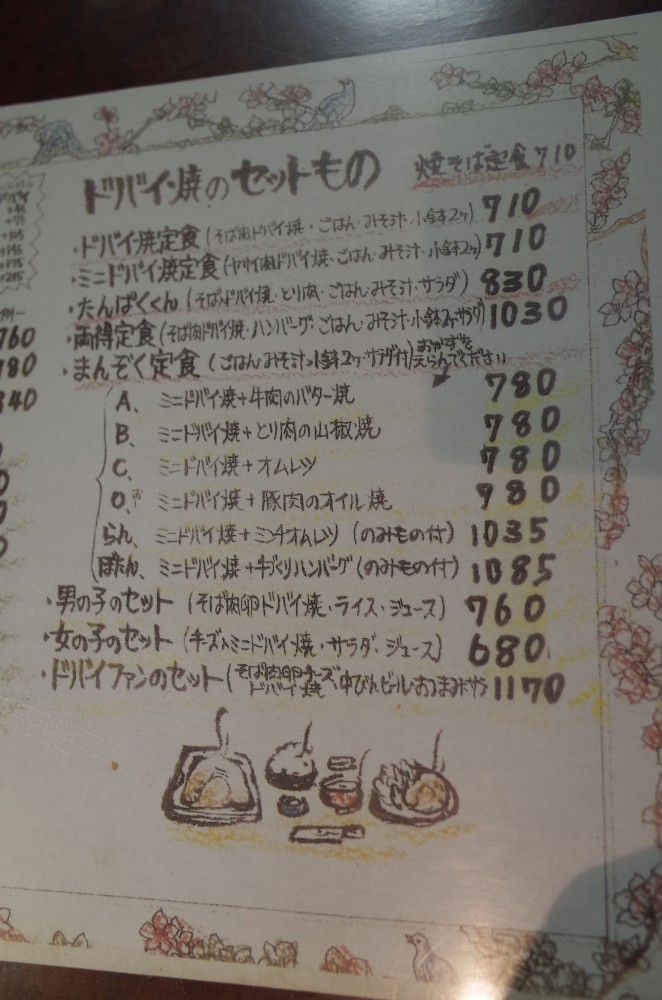 ドバイ焼のセットもの 焼そば定食710
・ドバイ焼定食(そば肉ドバイ焼・ごはん・みそ汁・小鉢2ヶ) 710
・ミニドバイ焼定食(ヤサイ肉ドバイ焼・ごはん・みそ汁・小鉢2ヶ) 710
・たんぱくくん(そばドバイ焼・とり肉・ごはん・みそ汁・サラダ) 830
・両得定食(そば肉ドバイ焼・ハンバーグ・ごはん・みそ汁・小鉢2ヶ・サラダ) 1030
・まんぞく定食(ごはん・みそ汁・小鉢2ヶ・サラダ付)おかずをえらんでください
A、ミニドバイ焼+牛肉のバター焼 780
B、ミニドバイ焼+とり肉の山椒焼 780
C、ミニドバイ焼+オムレツ 780
O、ミニドバイ焼+豚肉のオイル焼 980
らん、ミニドバイ焼+ミンチオムレツ(のみもの付) 1035
ぼたん、ミニドバイ焼+手づくりハンバーグ(のみもの付) 1085
・男の子のセット(そば肉卵ドバイ焼・ライス・ジュース) 760
・女の子のセット(チーズ入ミニドバイ焼・サラダ・ジュース) 680
・ドバイファンのセット(そば肉卵チーズドバイ焼・中びんビール・おつまみ 1170
760
780
840